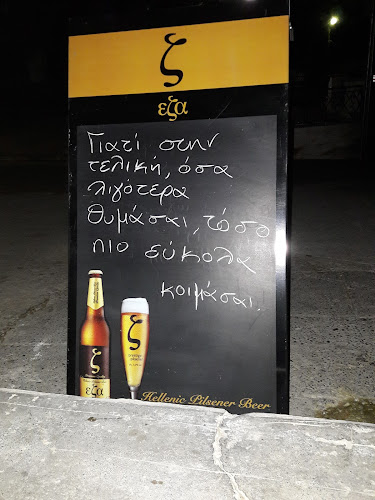 ζ
εζα
Γιατί στην
τελική, όσα
λιγότερα
θυμάσαι, τόσο
πιο εύκολα
κοιμάσαι.
ζ
εζα
ζ
Hellenic Pilsener Beer